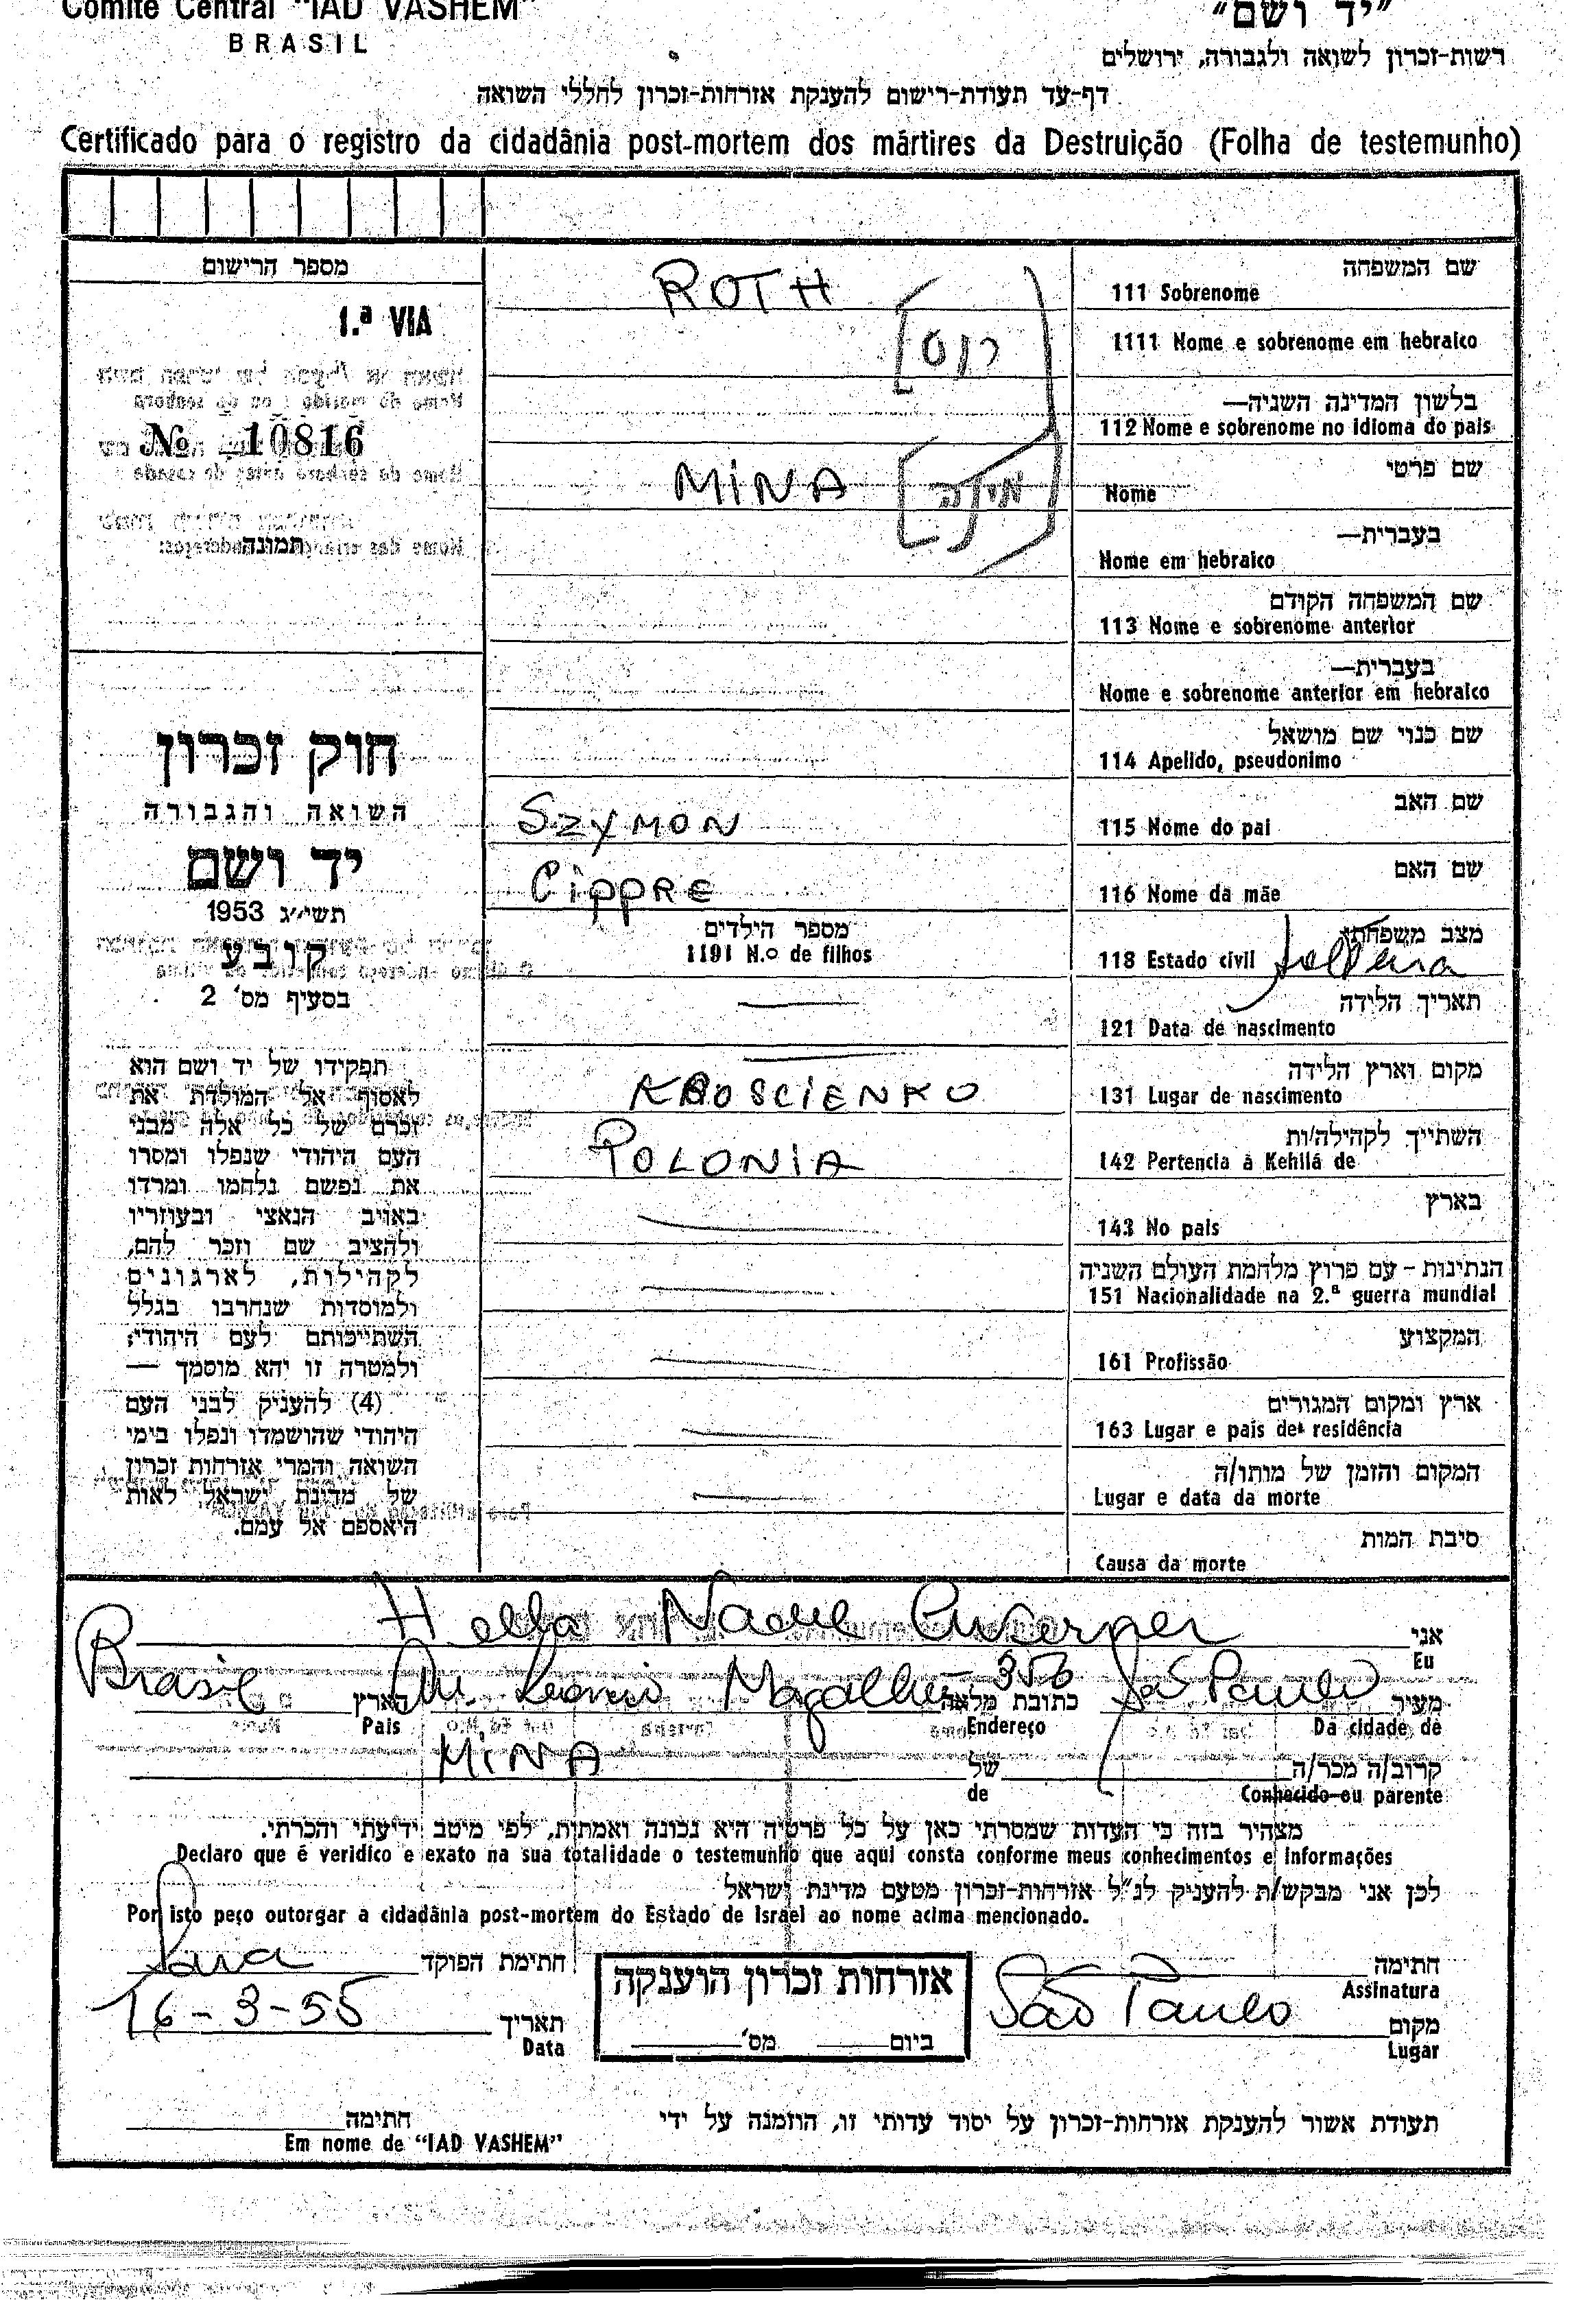 Comité Central "IAD VASHEM"
BRASIL
"יד ושם"
רשות-זכרון לשואה ולגבורה, ירושלים
דף-עד תעודת-רישום להענקת אזרחות-זכרון לחללי השואה
Certificado para o registro da cidadânia post-mortem dos mártires da Destruição (Folha de testemunho)
מספר הרישום
1.ª VIA
Nº 10816
תמונה
חוק זכרון
השואה והגבורה
יד ושם
תשי"ג 1953
קובע
בסעיף מס' 2
תפקידו של יד ושם הוא
לאסוף אל המולדת את
זכרם של כל אלה מבני
העם היהודי שנפלו ומסרו
את נפשם נלחמו ומרדו
באויב הנאצי ובעוזריו
ולהציב שם וזכר להם,
לקהילות, לארגונים
ולמוסדות שנחרבו בגלל
השתייכותם לעם היהודי;
ולמטרה זו יהא מוסמך —
(4) להעניק לבני העם
היהודי שהושמדו ונפלו בימי
השואה והמרי אזרחות זכרון
של מדינת ישראל לאות
היאספם אל עמם.
שם המשפחה
111 Sobrenome ROTH
1111 Nome e sobrenome em hebraico [רוט
בלשון המדינה השניה—
112 Nome e sobrenome no idioma do pais
שם פרטי
Nome MINA [מינה]
בעברית—
Nome em hebraico
שם המשפחה הקודם
113 Nome e sobrenome anterior
בעברית—
Nome e sobrenome anterior em hebraico
שם כנוי שם מושאל
114 Apelido, pseudonimo
שם האב
115 Nome do pai SZYMON
שם האם
116 Nome da mãe CIPPRE
מצב משפחתי
118 Estado civil solteira
מספר הילדים
1191 N.o de filhos
תאריך הלידה
121 Data de nascimento
מקום וארץ הלידה
131 Lugar de nascimento KROSCIENKO
השתייך לקהילה/ות
142 Pertencia à Kehilá de POLONIA
בארץ
143 No pais
הנתינות - עם פרוץ מלחמת העולם השניה
151 Nacionalidade na 2.ª guerra mundial
המקצוע
161 Profissão
ארץ ומקום המגורים
163 Lugar e pais de residência
המקום והזמן של מותו/ה
Lugar e data da morte
סיבת המות
Causa da morte
אני
Eu Hella
מעיר São Paulo כתובת מלאה Magalhães 356 הארץ Brasil
Da cidade de Endereço Pais
קרוב/ה מכר/ה של MINA
Conhecido ou parente de
מצהיר בזה כי העדות שמסרתי כאן על כל פרטיה היא נכונה ואמתית, לפי מיטב ידיעתי והכרתי.
Declaro que é veridico e exato na sua totalidade o testemunho que aqui consta conforme meus conhecimentos e informações
לכן אני מבקש/ת להעניק לנ"ל אזרחות-זכרון מטעם מדינת ישראל
Por isto peço outorgar a cidadânia post-mortem do Estado de Israel ao nome acima mencionado.
חתימה
Assinatura
חתימת הפוקד
מקום São Paulo
Lugar
אזרחות זכרון הוענקה
ביום מס'
תאריך 16-3-55
Data
תעודת אשור להענקת אזרחות-זכרון על יסוד עדותי זו, הוזמנה על ידי
חתימה
Em nome de "IAD VASHEM"